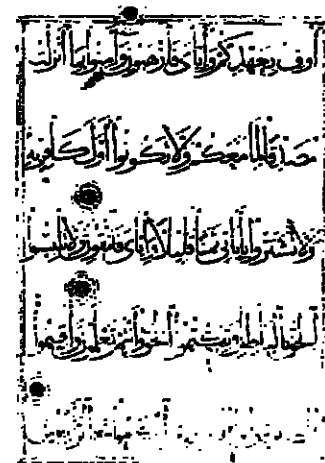 أوف بعهدكم وإياى فارهبون وآمنوا بما أنزلت
مصدقا لما معكم ولا تكونوا أول كافر به
ولا تشتروا بآياتى ثمنا قليلا وإياى فاتقون ولا تلبسوا
الحق بالباطل وتكتموا الحق وأنتم تعلمون وأقيموا